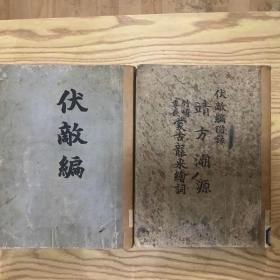 伏敵編
伏敵編附録
靖方溯源
竹崎季長
蒙古襲来繪詞